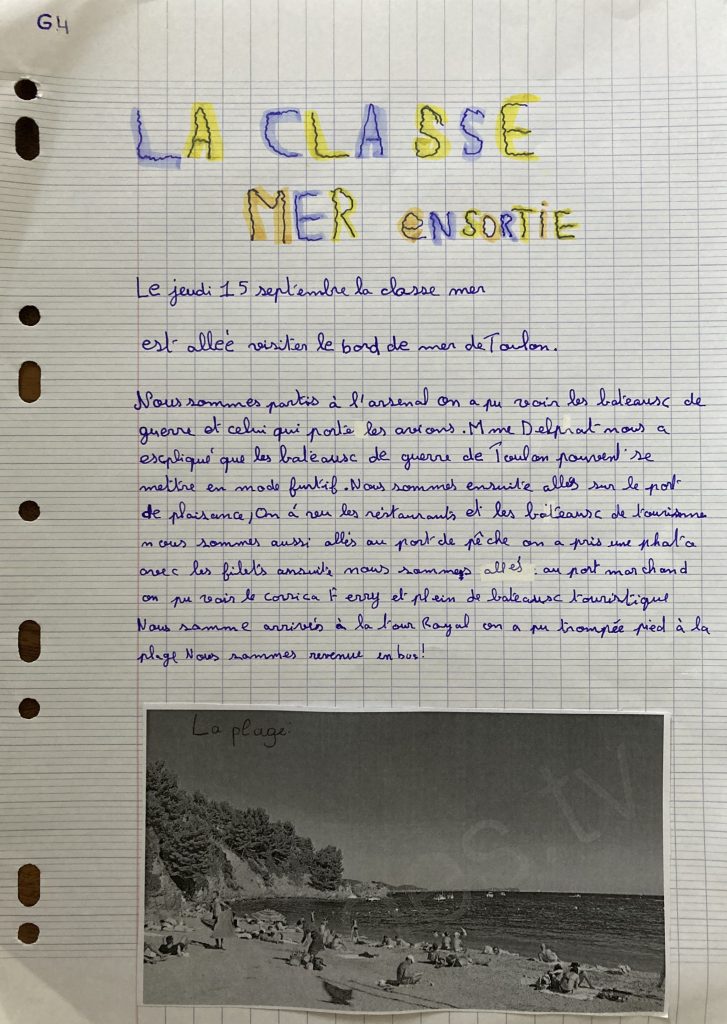 G4
LA CLASSE
MER en SORTIE
Le jeudi 15 septembre la classe mer
est alleé visiter le bord de mer de Toulon.
Nous sommes partis à l'arsenal on a pu voir les bateausc de
guerre et celui qui porte les avions. Mme Delprat nous a
escpliqué que les bateausc de guerre de Toulon peuvent se
mettre en mode furtif. Nous sommes ensuite allés sur le port
de plaisance, On à veu les réstaurants et les bâteausc de tourisme
nous sommes aussi allés au port de pêche on a pris une phota
avec les filets ansuite nous sommes allés au port marchand
on pu voir le corsica Ferry et plein de bateausc touristique
Nous samme arrivés à la tour Royal on a pu trompée pied à la
plage Nous sammes revenue en bus!
La plage:
es.tv